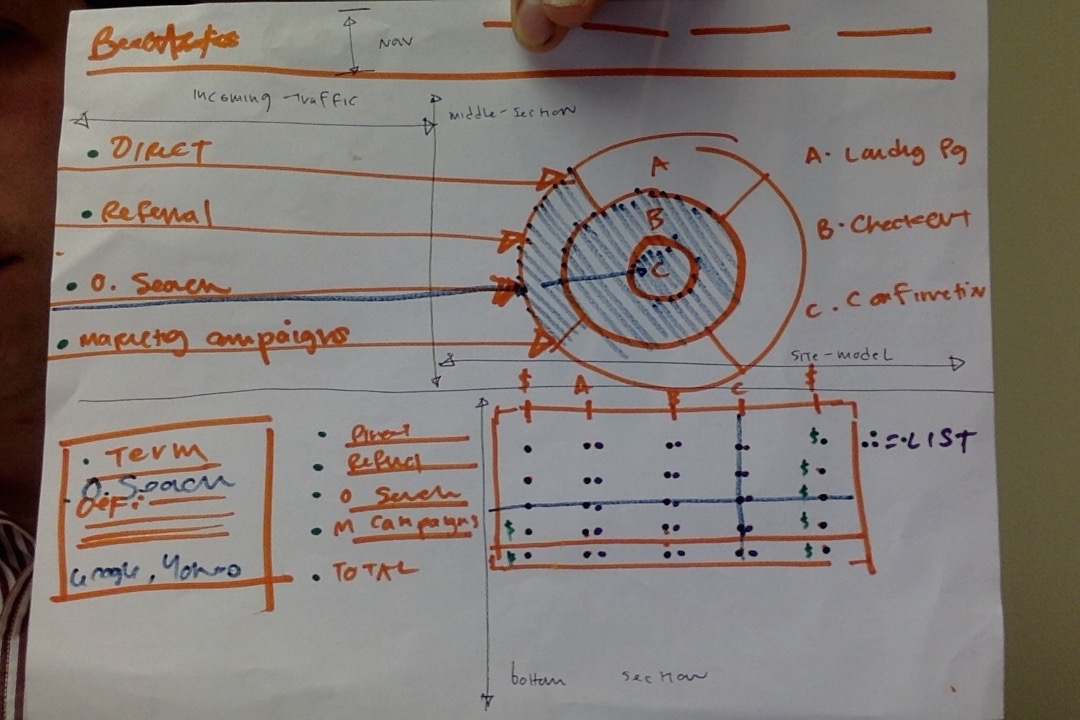 NAV
incoming traffic
middle-section
• DIRECT
• Referral
• O. Search
• Marketg campaigns
A
B
C
A. Landg Pg
B. Checkout
C. Confirmation
site-model
$ A B C $
• Term
O. Search
Def:
Google, Yahoo
• Direct
• Referral
• O Search
• M Campaigns
• TOTAL
$
$
$
$ $
$ $
∴=•LIST
bottom section